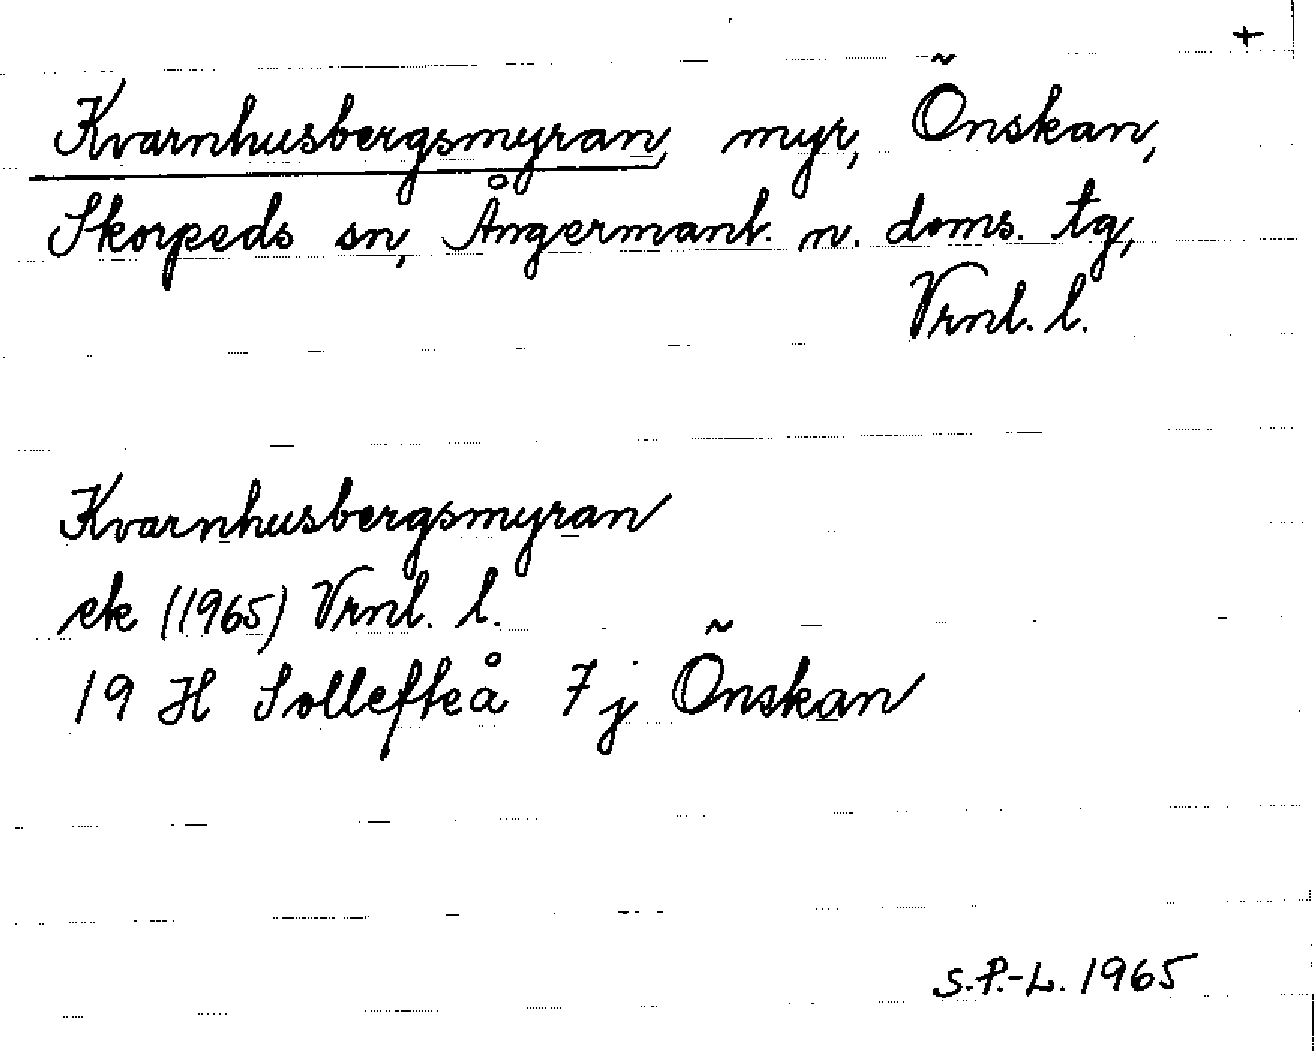 +
Kvarnhusbergsmyran, myr, Önskan,
Skorpeds sn, Ångermanl. n. doms. tg,
Vrnl. l.
Kvarnhusbergsmyran
ek (1965) Vrnl. l.
19 H Sollefteå 7 j Önskan
S.P.-L. 1965